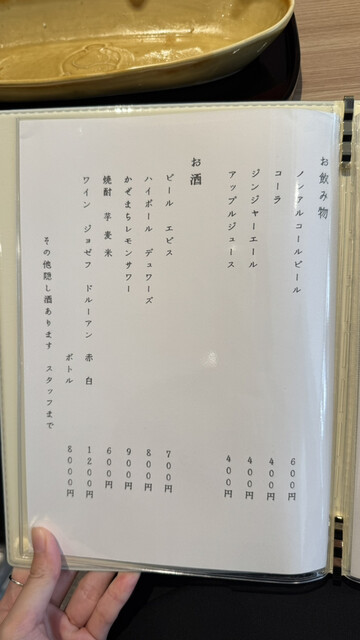 お飲み物
ノンアルコールビール 600円
コーラ 400円
ジンジャーエール 400円
アップルジュース 400円
お酒
ビール エビス 700円
ハイボール デュワーズ 800円
かぜまちレモンサワー 900円
焼酎 芋 麦 米 600円
ワイン ジョゼフ ドルーアン 赤 白 1200円
ボトル 8000円
その他隠し酒あります スタッフまで